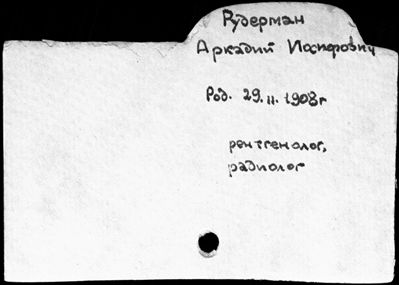 Рудерман
Аркадий Иосифович
Род. 29.11.1908г
рентгенолог,
радиолог